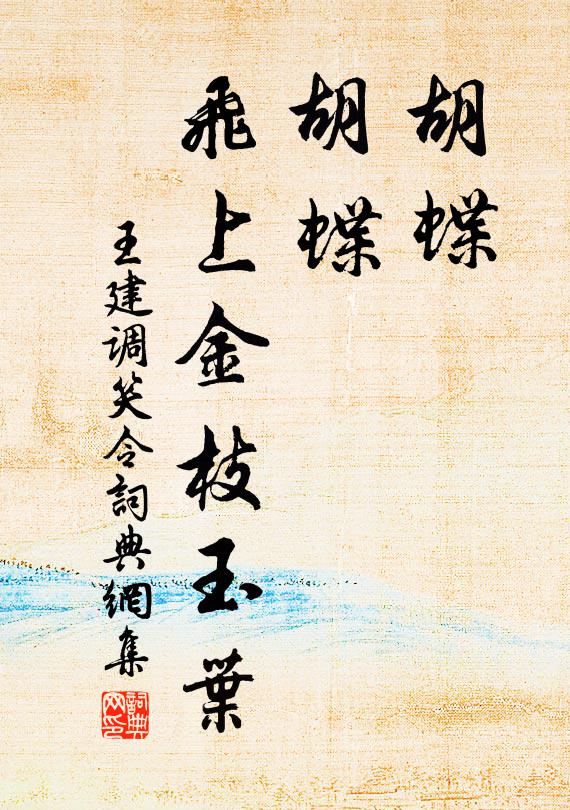 胡蝶
胡蝶
飛上金枝玉葉
王建調笑令詞典網集
詞典网印